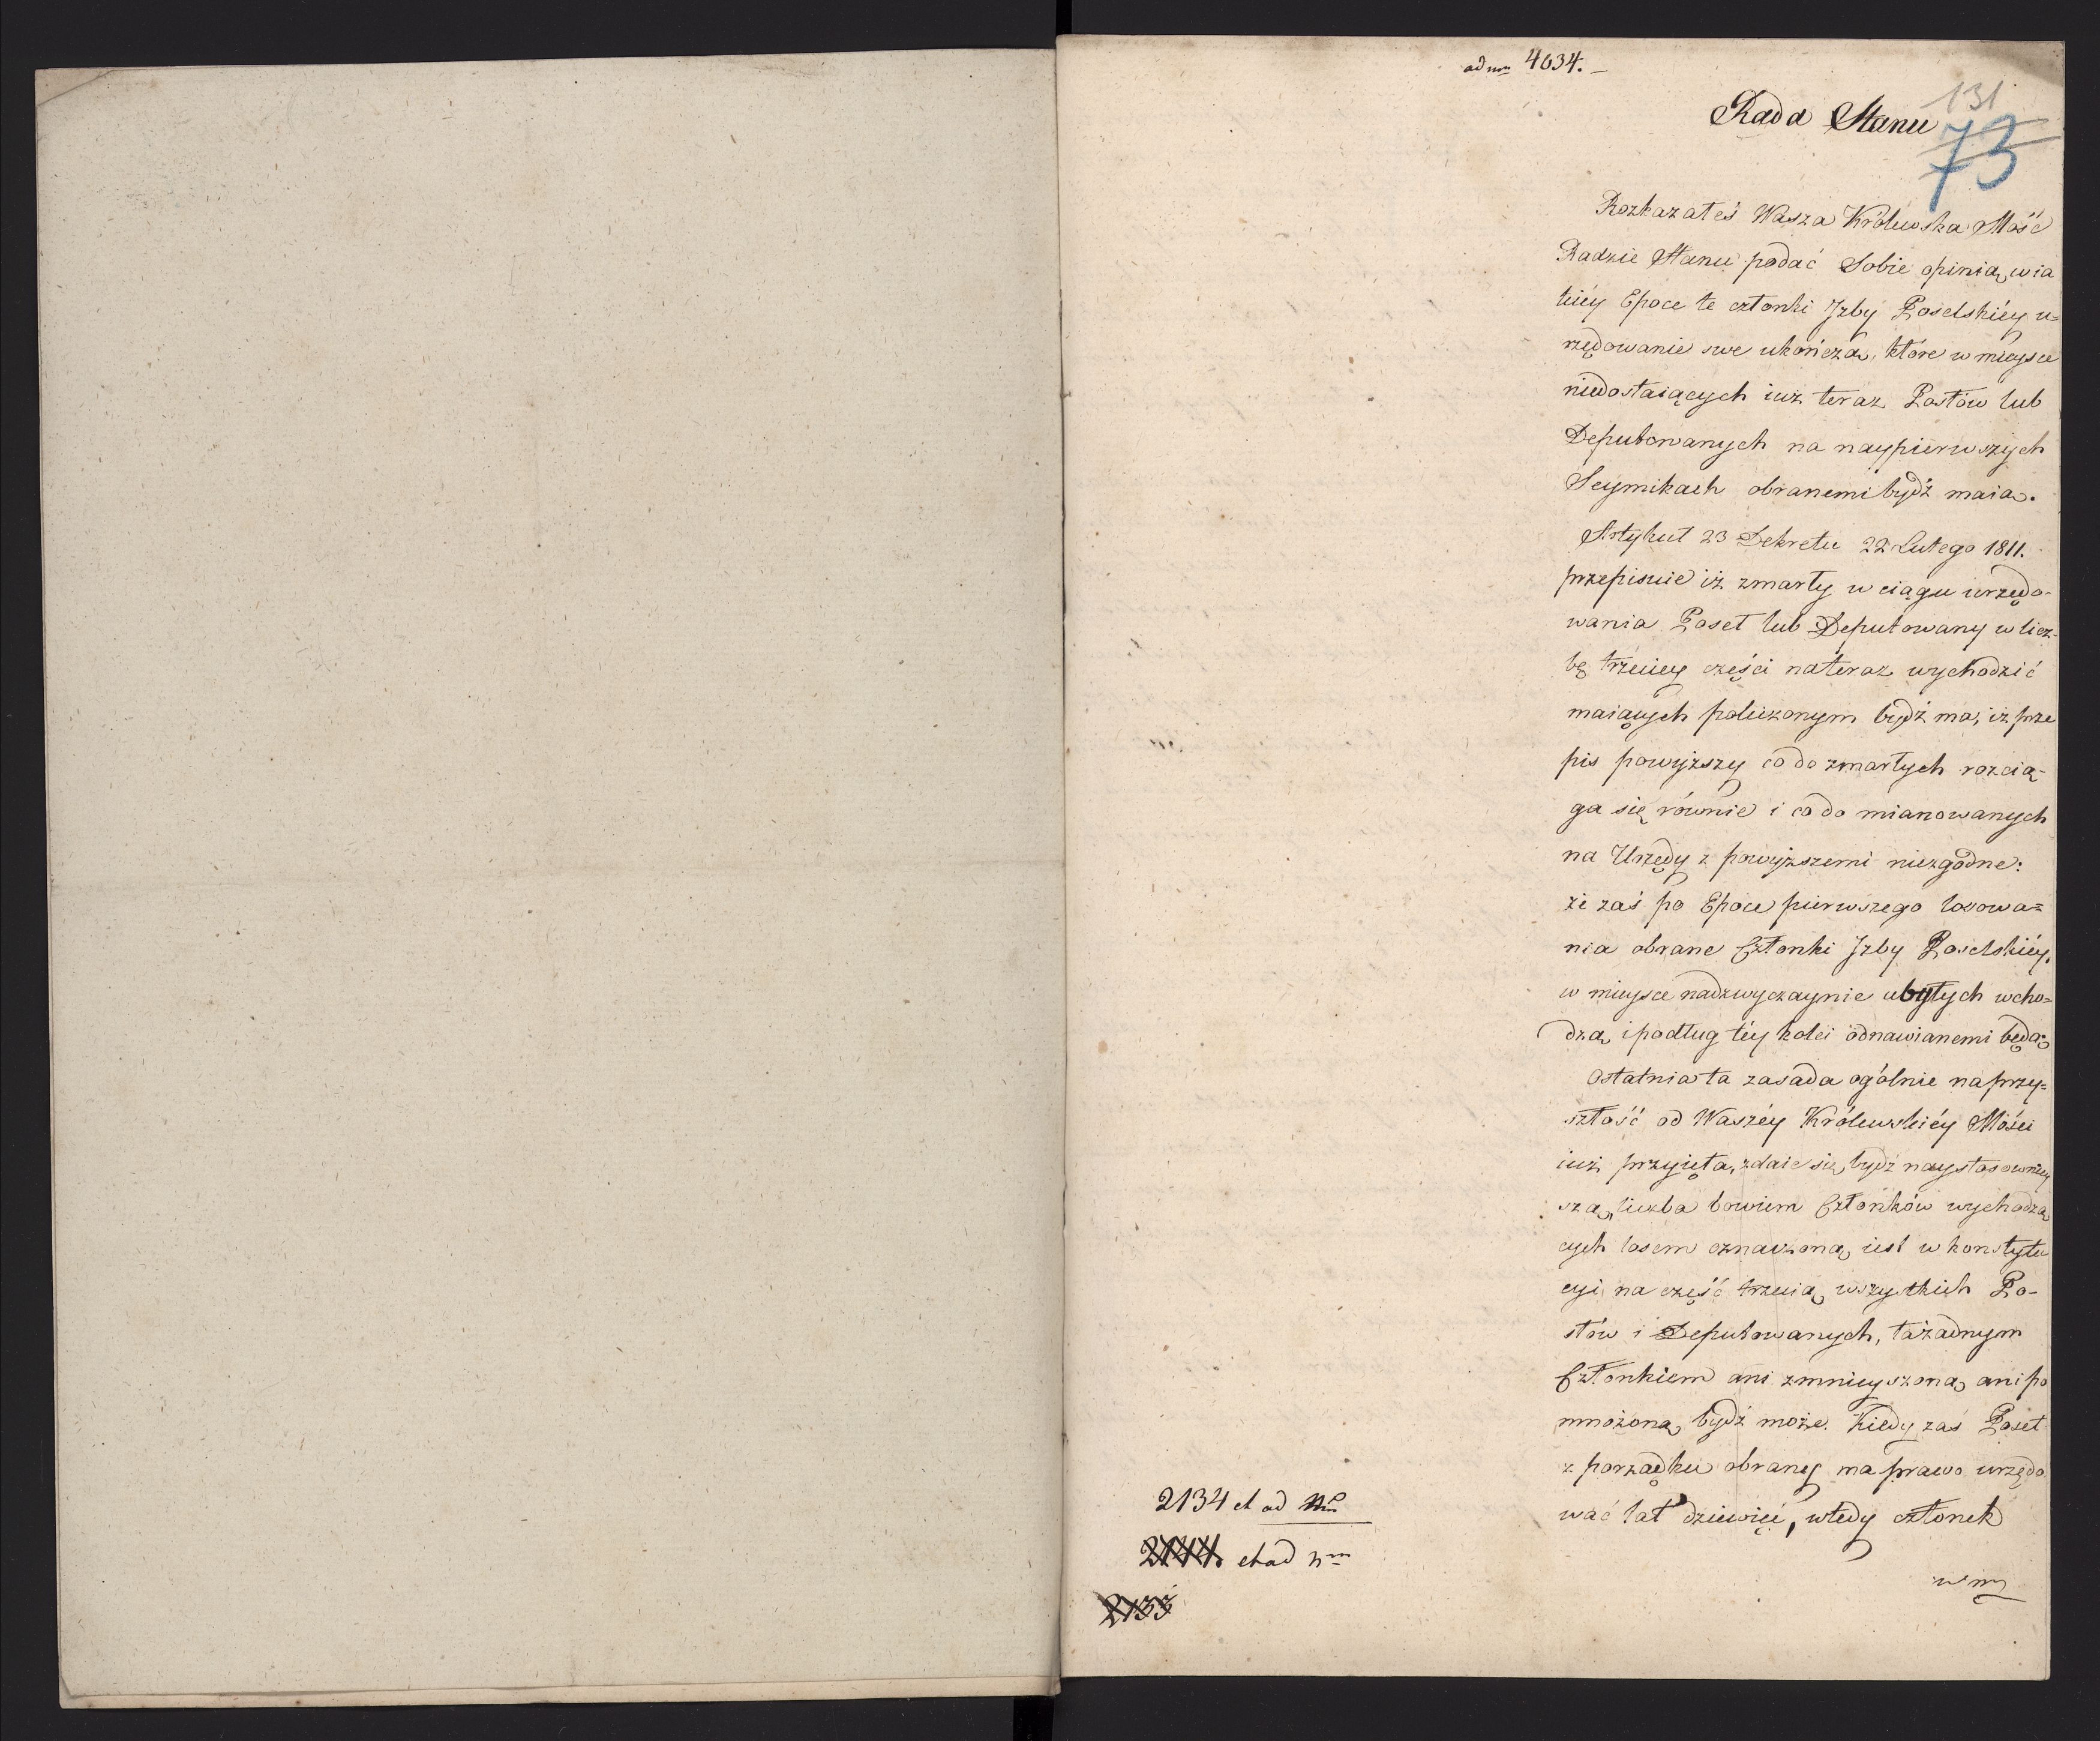 ad nrm 4634. –
131
Rada Stanu
73
Rozkazałeś Wasza Królewska Mość
Radzie Stanu podać Sobie opinią, w ia
kiéy Epoce te członki Jzby Poselskiéy u=
rzędowanie swe ukończą, które w mieysce
niedostaiących iuż teraz Posłów lub
Deputowanych na naypierwszych
Seymikach obranemi bydź maią.
Artykuł 23 Dekretu 22 Lutego 1811.
przepisuie iż zmarły w ciągu urzędo-
wania Poseł lub Deputowany w licz-
bę trzeciey części na teraz wychodzić
maiących policzonym bydź ma, iż prze
pis powyższy co do zmarłych rozcią-
ga się równie i co do mianowanych
na Urzędy z powyższemi niezgodne:
że zaś po Epoce pierwszego losowa=
nia obrane Członki Jzby Poselskiéy.
w mieysce nadzwyczaynie ubyłych wcho=
dzą, i podług téy kolei odnawianemi będą;
Ostatnia ta zasada ogólnie na przy=
szłość od Waszéy Królewskiéy Mości
iuż przyięta, zdaie się bydź naystosowniey
szą, liczba bowiem Członków wychodzą
cych losem oznaczoną iest w konstytu
cyi na część trzecią wszystkich Po-
słów i Deputowanych, ta żadnym
Członkiem ani zmnieyszoną, ani po
mnożoną bydź może. Kiedy zaś Poseł
z porządku obrany ma prawo urzędo
wać lat dziewięć, wtedy członek
w m
2134 et ad Nrm
2144. et ad nrm
2133